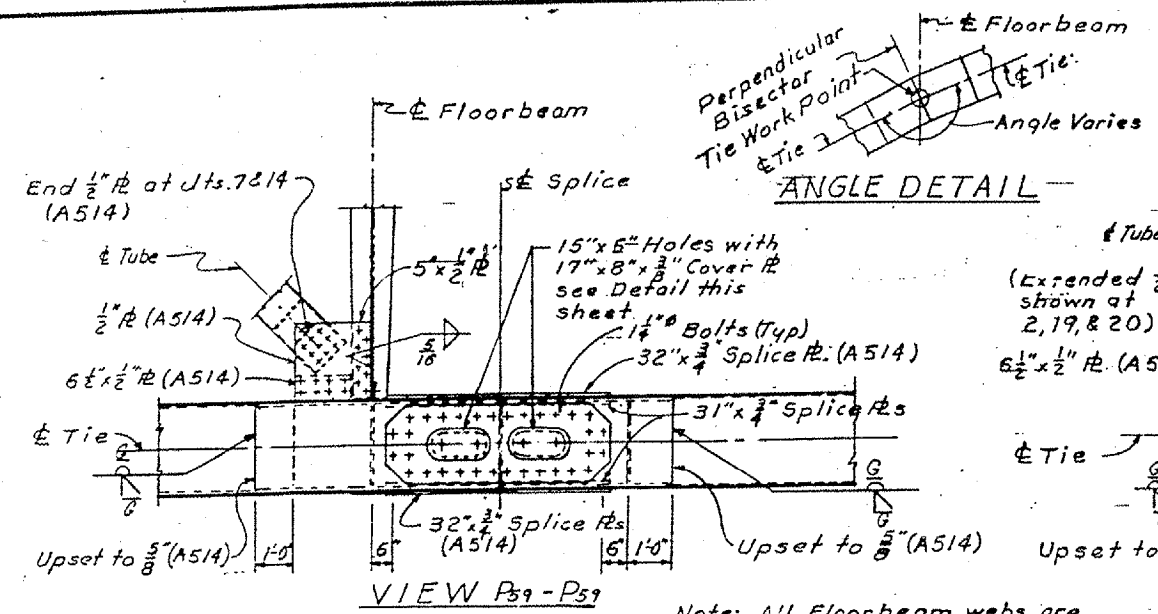 ℄ Floorbeam
Perpendicular
Bisector
Tie Work Point
℄ Tie
℄ Tie
Angle Varies
ANGLE DETAIL
℄ Floorbeam
End 1/2" ℞ at Jts. 7&14
(A514)
℄ Splice
℄ Tube
5" x 1/2" ℞
15" x 6" Holes with
17" x 8" x 3/8" Cover ℞
see Detail this
sheet
1/2" ℞ (A514)
5/16
1 1/4" ø Bolts (Typ)
32" x 3/4" Splice ℞. (A514)
6 1/2" x 1/2" ℞ (A514)
31" x 3/4" Splice ℞s
℄ Tie
G
G
G
G
32" x 3/4" Splice ℞s
(A514)
Upset to 5/8" (A514)
1'-0"
6"
6"
1'-0"
Upset to 5/8" (A514)
VIEW P59-P59
℄ Tube
(Extended
shown at
2, 19, & 20)
6 1/2" x 1/2" ℞ (A5
℄ Tie
G
G
Upset to
Note: All Floorbeam webs are